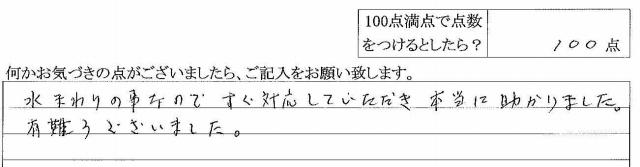 100点満点で点数
をつけるとしたら？ 100点
何かお気づきの点がございましたら、ご記入をお願い致します。
水まわりの事なので すぐ対応していただき 本当に助かりました。
有難うございました。